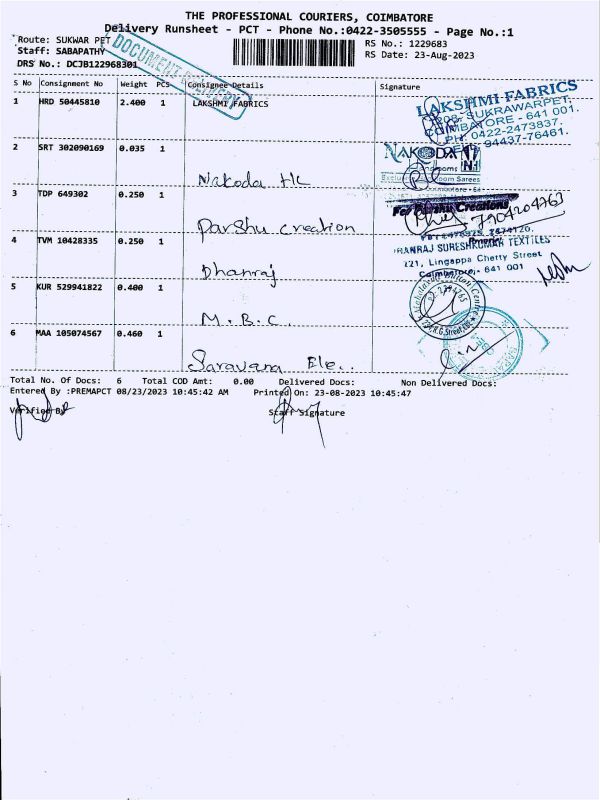 THE PROFESSIONAL COURIERS, COIMBATORE
Delivery Runsheet - PCT - Phone No.:0422-3505555 - Page No.:1
Route: SUKWAR PET
RS No.: 1229683
Staff: SABAPATHY
RS Date: 23-Aug-2023
DRS No.: DCJB122968301
DOCUMENT
S No Consignment No Weight PCS Consignee Details Signature
1 HRD 50445810 2.400 1 LAKSHMI FABRICS
LAKSHMI FABRICS
SUKRAWARPET,
COIMBATORE - 641 001.
PH: 0422-2473837,
94437-76461.
2 SRT 302090169 0.035 1
NAKODA
Nakoda
3 TDP 649302 0.250 1
For Parshu Creations
7904204763
Parshu creation
4 TVM 10428335 0.250 1
DHANRAJ SURESHKUMAR TEXTILES
221, Lingappa Chetty Street
Coimbatore - 641 001
Dhanraj
5 KUR 529941822 0.400 1
M.B.C.
6 MAA 105074567 0.460 1
Saravana Ele..
Total No. Of Docs: 6 Total COD Amt: 0.00 Delivered Docs: Non Delivered Docs:
Entered By :PREMAPCT 08/23/2023 10:45:42 AM Printed On: 23-08-2023 10:45:47
Verified By Staff Signature